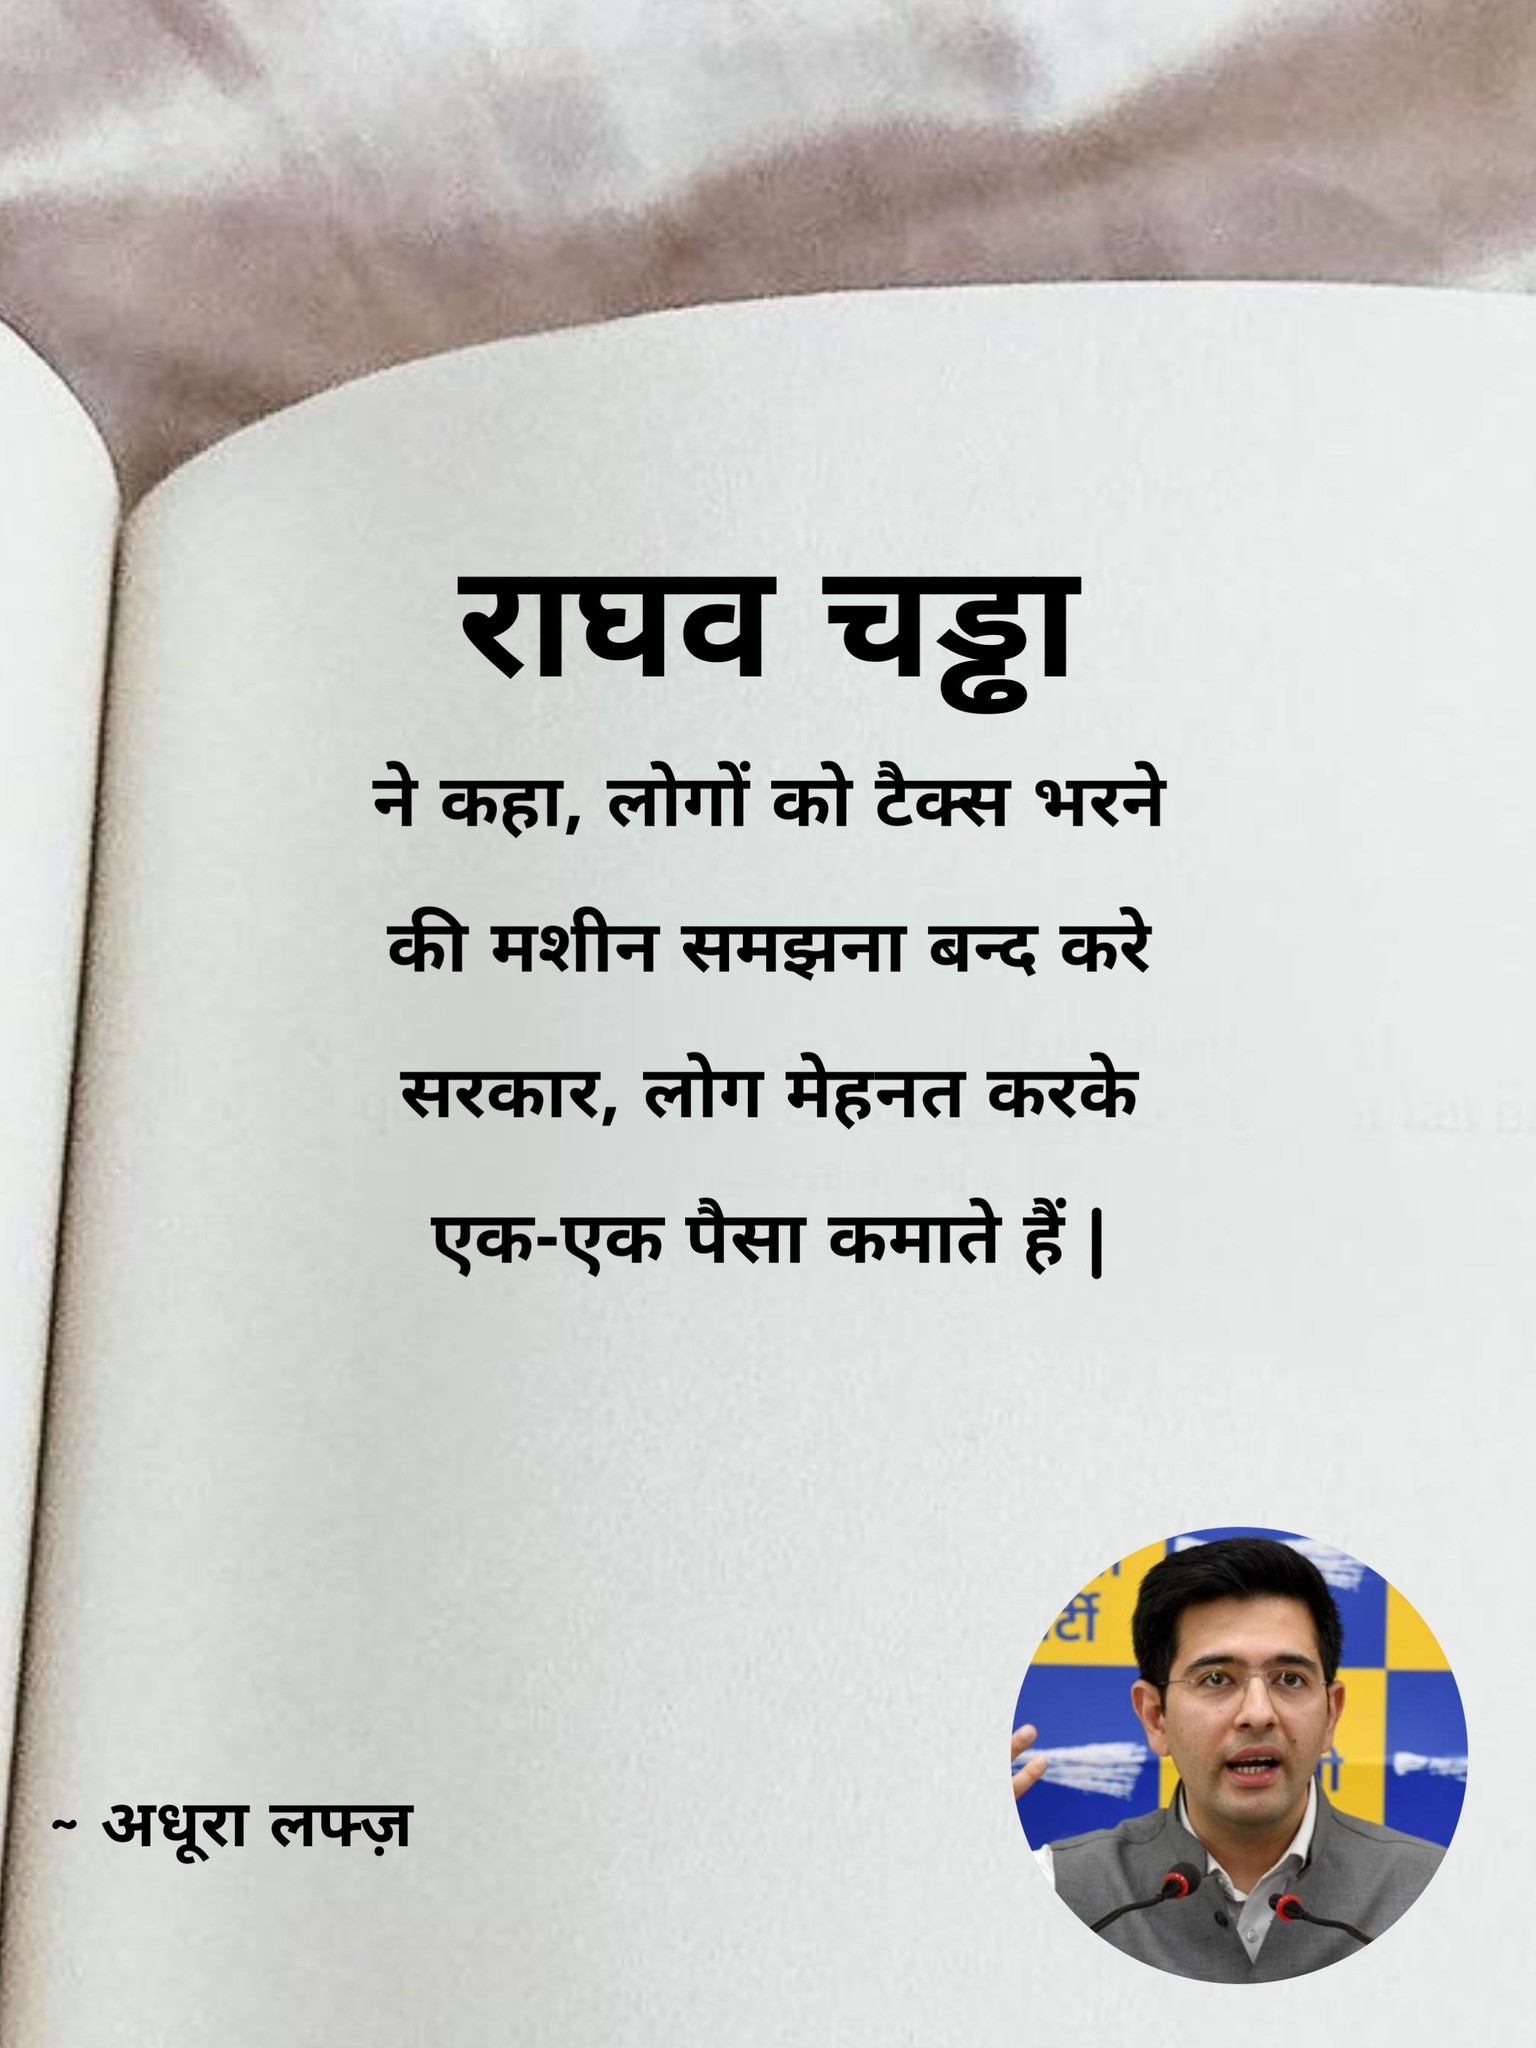 राघव चड्ढा
ने कहा, लोगों को टैक्स भरने
की मशीन समझना बन्द करे
सरकार, लोग मेहनत करके
एक-एक पैसा कमाते हैं |
~ अधूरा लफ्ज़